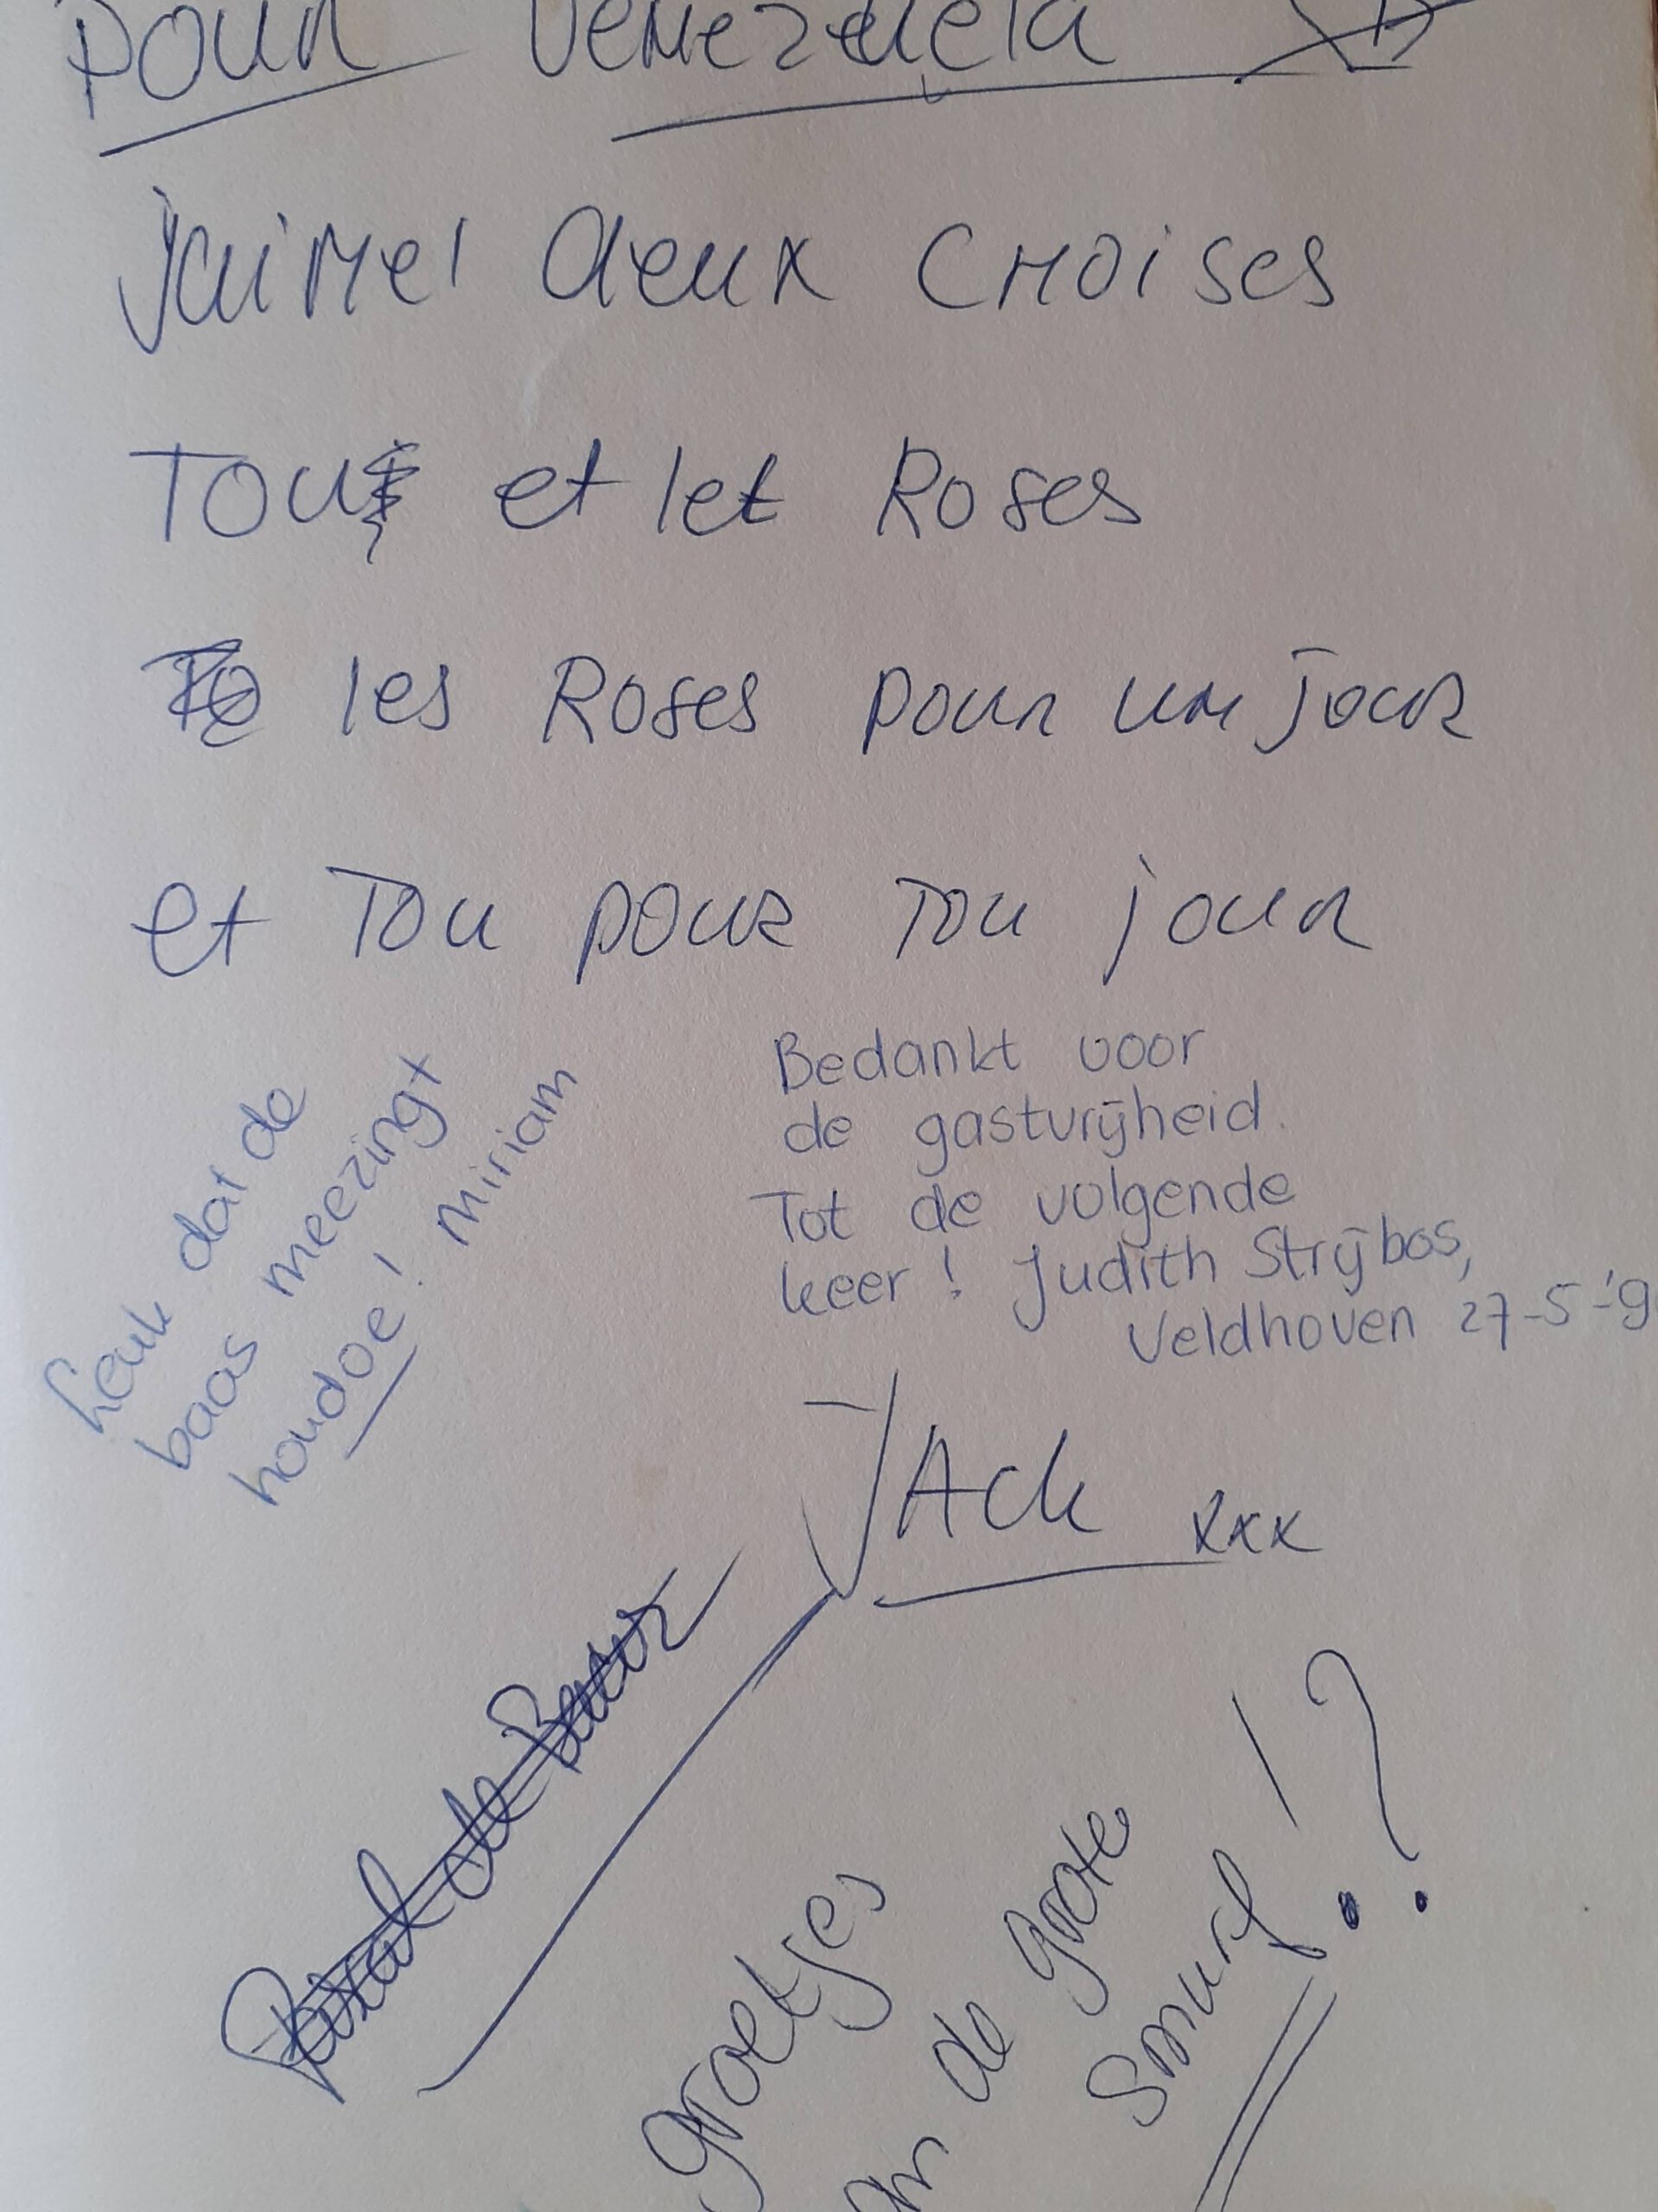 pour Venezuela
j'aimel deux choises
Tou et let Roses
les Roses pour un jour
et Tou pour Tou jour
Bedankt voor
de gastvrijheid.
Tot de volgende
keer! Judith Strijbos,
Veldhoven 27-5-'9
leuk dat de
baas meezingt
houdoe! Miriam
JAck xxx
Groetjes
de Grote
Smurf!?